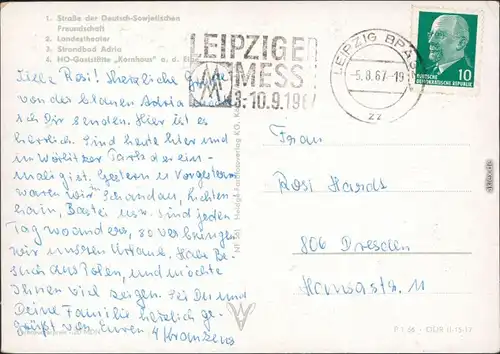 1. Straße der Deutsch-Sowjetischen
Freundschaft
2. Landestheater
3. Strandbad Adria
4. HO-Gaststätte „Kornhaus" a. d. Elbe
LEIPZIGER
MESS
3.-10.9.196
LEIPZIG BPA
-5.8.67-19
zz
DEUTSCHE
DEMOKRATISCHE REPUBLIK
10
Liebe Rosi! Herzliche Grüße
von der blauen Adria
ich Dir senden. Hier ist es
herrlich. Sind heute hier und
im Wörlitzer Park der ein-
malig ist. Gestern u. Vorgestern
waren wir Schandau, Lichten-
hain, Bastei usw. sind jeden
Tag woanders, so verbringen
wir unseren Urlaub. Haben Be-
such aus Polen, und möchte
Ihnen viel zeigen. Sei Du und
Deine Familie herzlich ge-
grüßt von Euren 4
Frau
Rosi Hardt
806 Dresden
str. 11